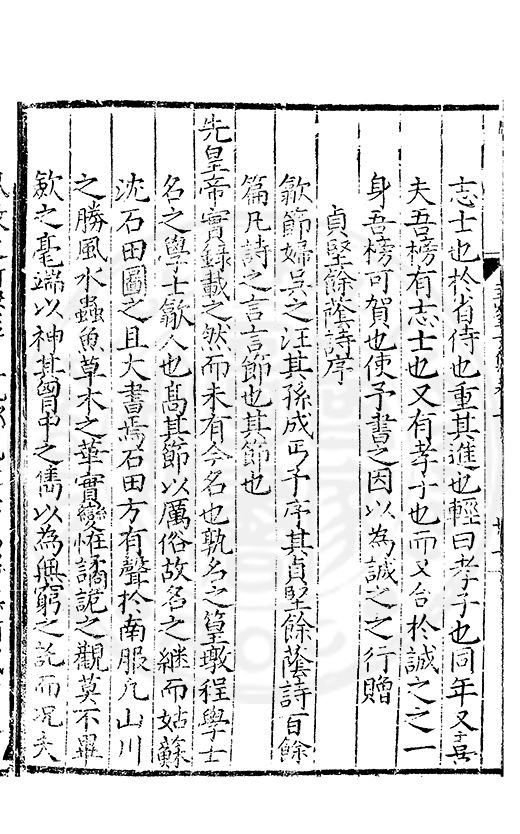 志士也於省侍也重其進也輕曰孝子也同年又喜
夫吾榜有志士也又有孝子也而又合於誠之之一
身吾榜可賀也使予書之因以為誠之之行贈
貞堅餘蔭詩序
歙節婦吳之汪其孫成丐予序其貞堅餘蔭詩百餘
篇凡詩之言言節也其節也
先皇帝實錄載之然而未有今名也孰名之篁墩程學士
名之學士歙人也髙其節以厲俗故名之継而姑蘇
沈石田圖之且大書焉石田方有聲於南服凢山川
之勝風水蟲魚草木之華實變恠譎詭之觀莫不畢
歛之毫端以神其胷中之雋以為無窮之託而况夫